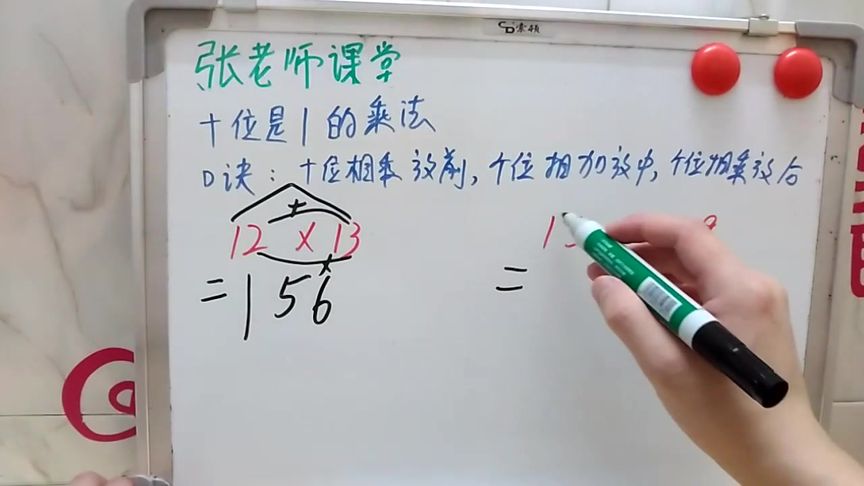 索顿
张老师课堂
十位是1的乘法
口诀:十位相乘放前,个位相加放中,个位相乘放后
+
12 × 13
×
=156
=